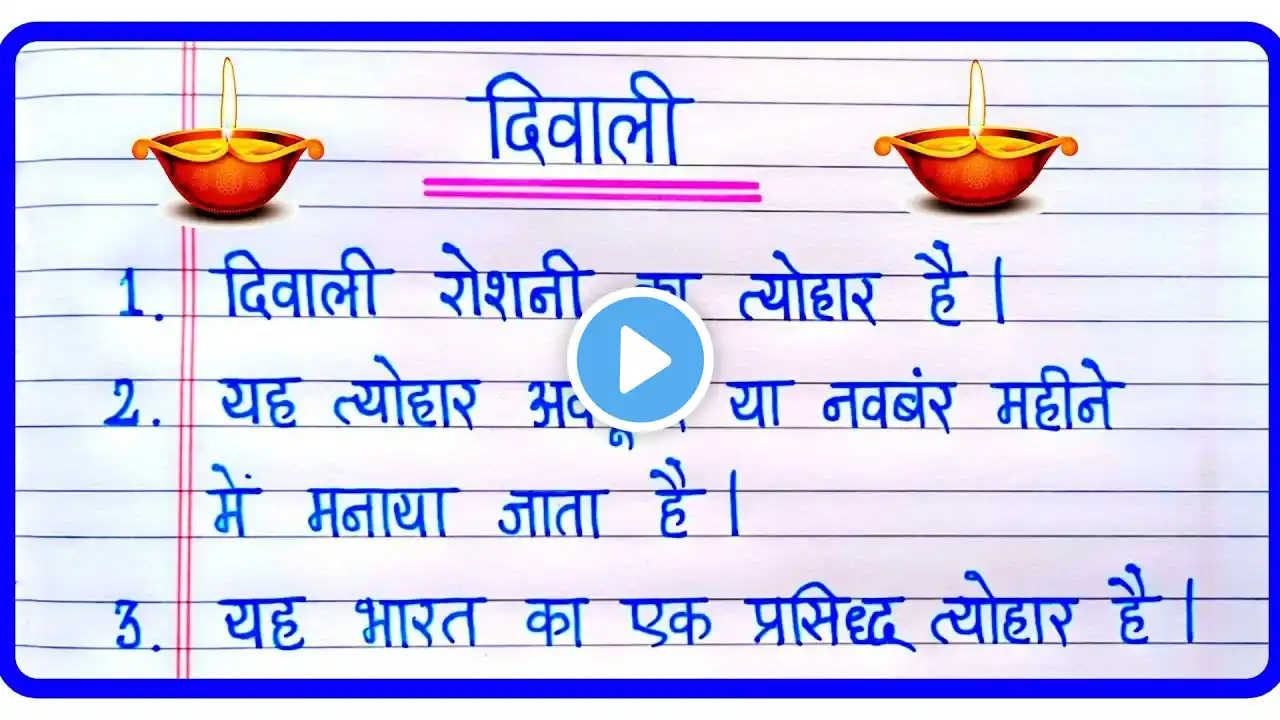 दिवाली
1. दिवाली रोशनी का त्योहार है।
2. यह त्योहार या नवबंर महीने
में मनाया जाता है।
3. यह भारत का एक प्रसिध्द त्योहार है।